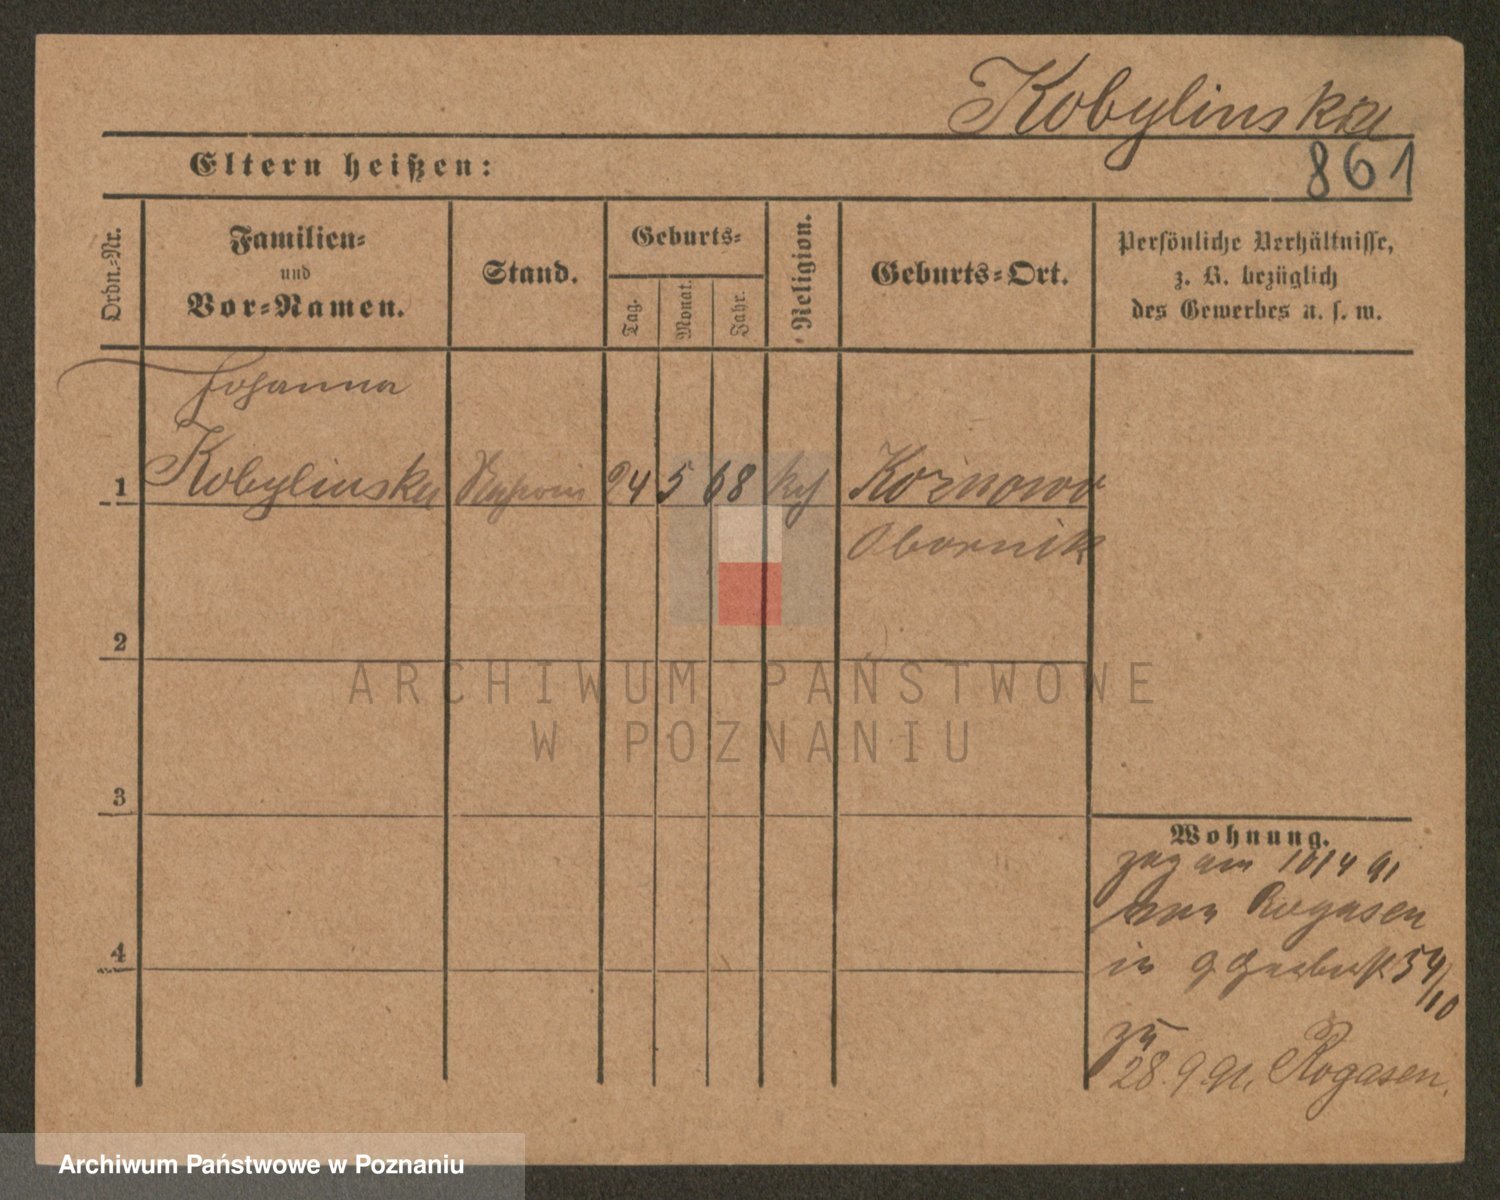 Kobylinska
861
Eltern heißen:
Ordn.-Nr.
Familien-
und
Vor-Namen.
Stand.
Geburts-
Tag.
Monat.
Jahr.
Religion.
Geburts-Ort.
Persönliche Verhältnisse,
z. B. bezüglich
des Gewerbes u. s. w.
Johanna
1 Kobylinska 24 5 68 kth Koznowo
Obornik
2
3
4
ARCHIWUM PAŃSTWOWE
W POZNANIU
Wohnung.
zog am 10/4 91
von Rogasen
in
zu
28.9.91. Rogasen.
Archiwum Państwowe w Poznaniu